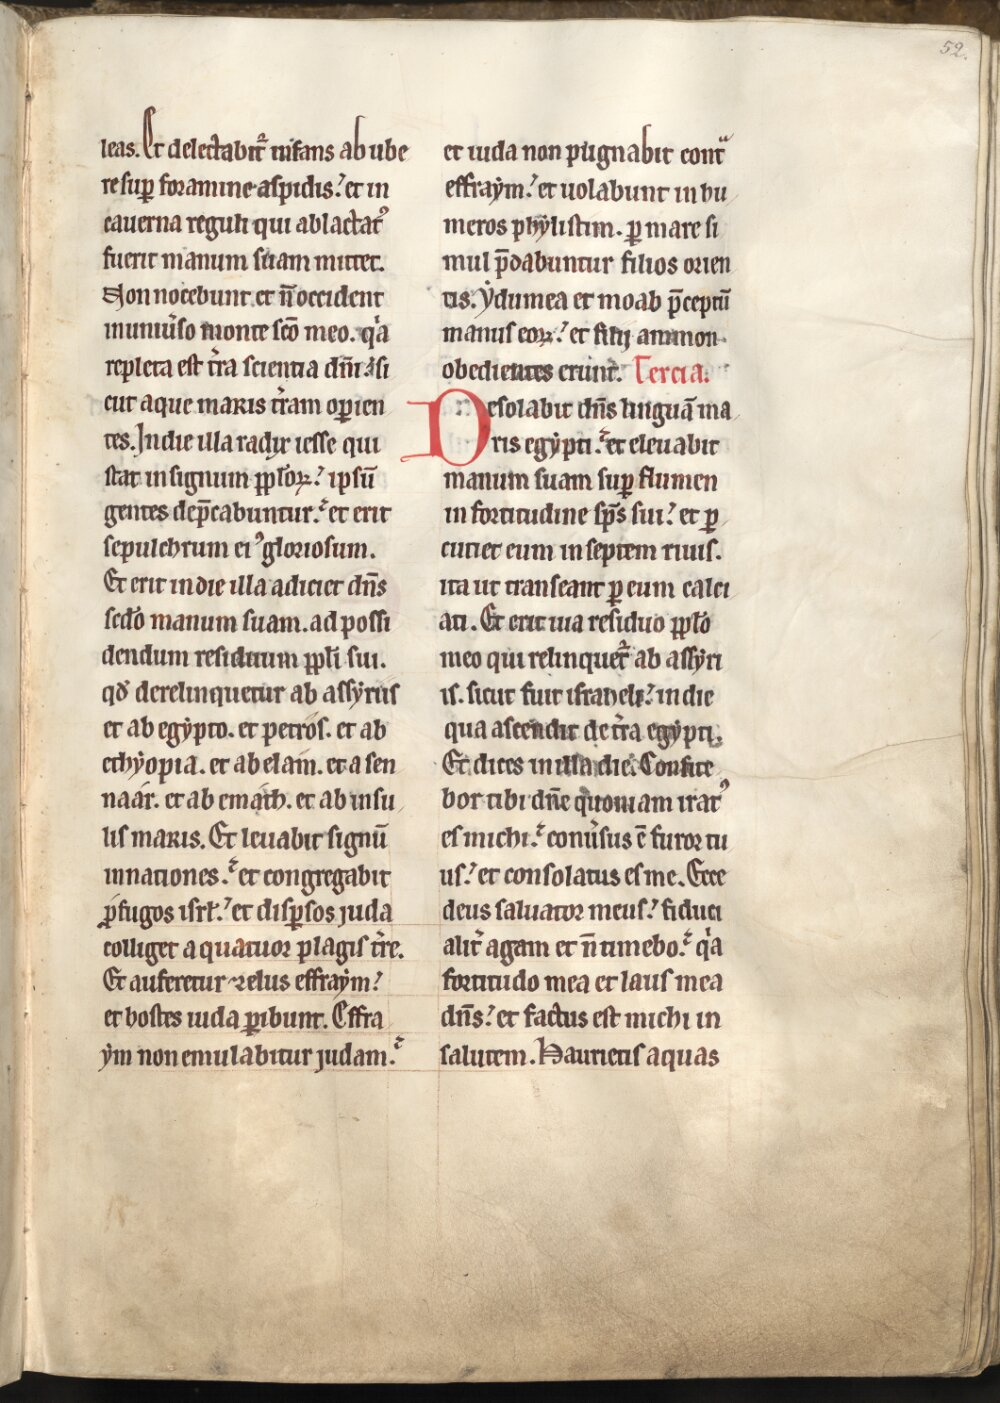 52.
leas. Et delectabit᷑ infans ab ube
re sup̱ foramine aspidis. et in
cauerna reguli qui ablactat᷒
fuerit manum suam mittet.
Non nocebunt et n̄ occident
in uniu᷑so monte sc̄o meo. qͣa
repleta est t᷑ra scientia dn̄i. si
cut aque maris t᷑ram op̱ien
tes. In die illa radix iesse qui
stat in signum pp̱lorꝝ. ipsū
gentes dep̄cabuntur. et erit
sepulchrum ei᷒ gloriosum.
Et erit in die illa adiciet dn̄s
sc̄do manum suam. ad possi
dendum residuum pp̱li sui.
qd̄ derelinquetur ab assyriis
et ab egẏpto. et petros. et ab
ethẏopia. et ab elam. et a sen
naar. et ab emath. et ab insu
lis maris. Et leuabit signū
in nationes. et congregabit
ꝓfugos isrł. et disꝑsos juda
colliget a quatuor plagis t᷑re.
Et auferetur zelus effraẏm.
et hostes iuda ꝑibunt. Effra
ẏm non emulabitur judam.
et iuda non pugnabit contͣ
effraẏm. et uolabunt in hu
meros phẏlistim. ꝑ mare si
mul p̄dabuntur filios orien
tis. Ẏdumea et moab p̄ceptū
manus eorꝝ. et filij ammon
obedientes erunt. Tercia.
Desolabit dn̄s linguā ma
ris egẏpti. et eleuabit
manum suam suꝑ flumen
in fortitudine sp̄s sui. et ꝑ
cutiet eum in septem riuis.
ita ut transeant ꝑ eum calci
ati. Et erit uia residuo pp̱lo
meo qui relinquet᷑ ab assẏri
is. sicut fuit israheli. in die
qua ascendit de t᷑ra egẏpti.
Et dices in illa die. Confite
bor tibi dn̄e quoniam irat᷒
es michi. conu᷑sus ē furor tu
us. et consolatus es me. Ecce
deus saluator meus. fiduci
alit᷑ agam et n̄ timebo. qͣa
fortitudo mea et laus mea
dn̄s. et factus est michi in
salutem. Haurietis aquas